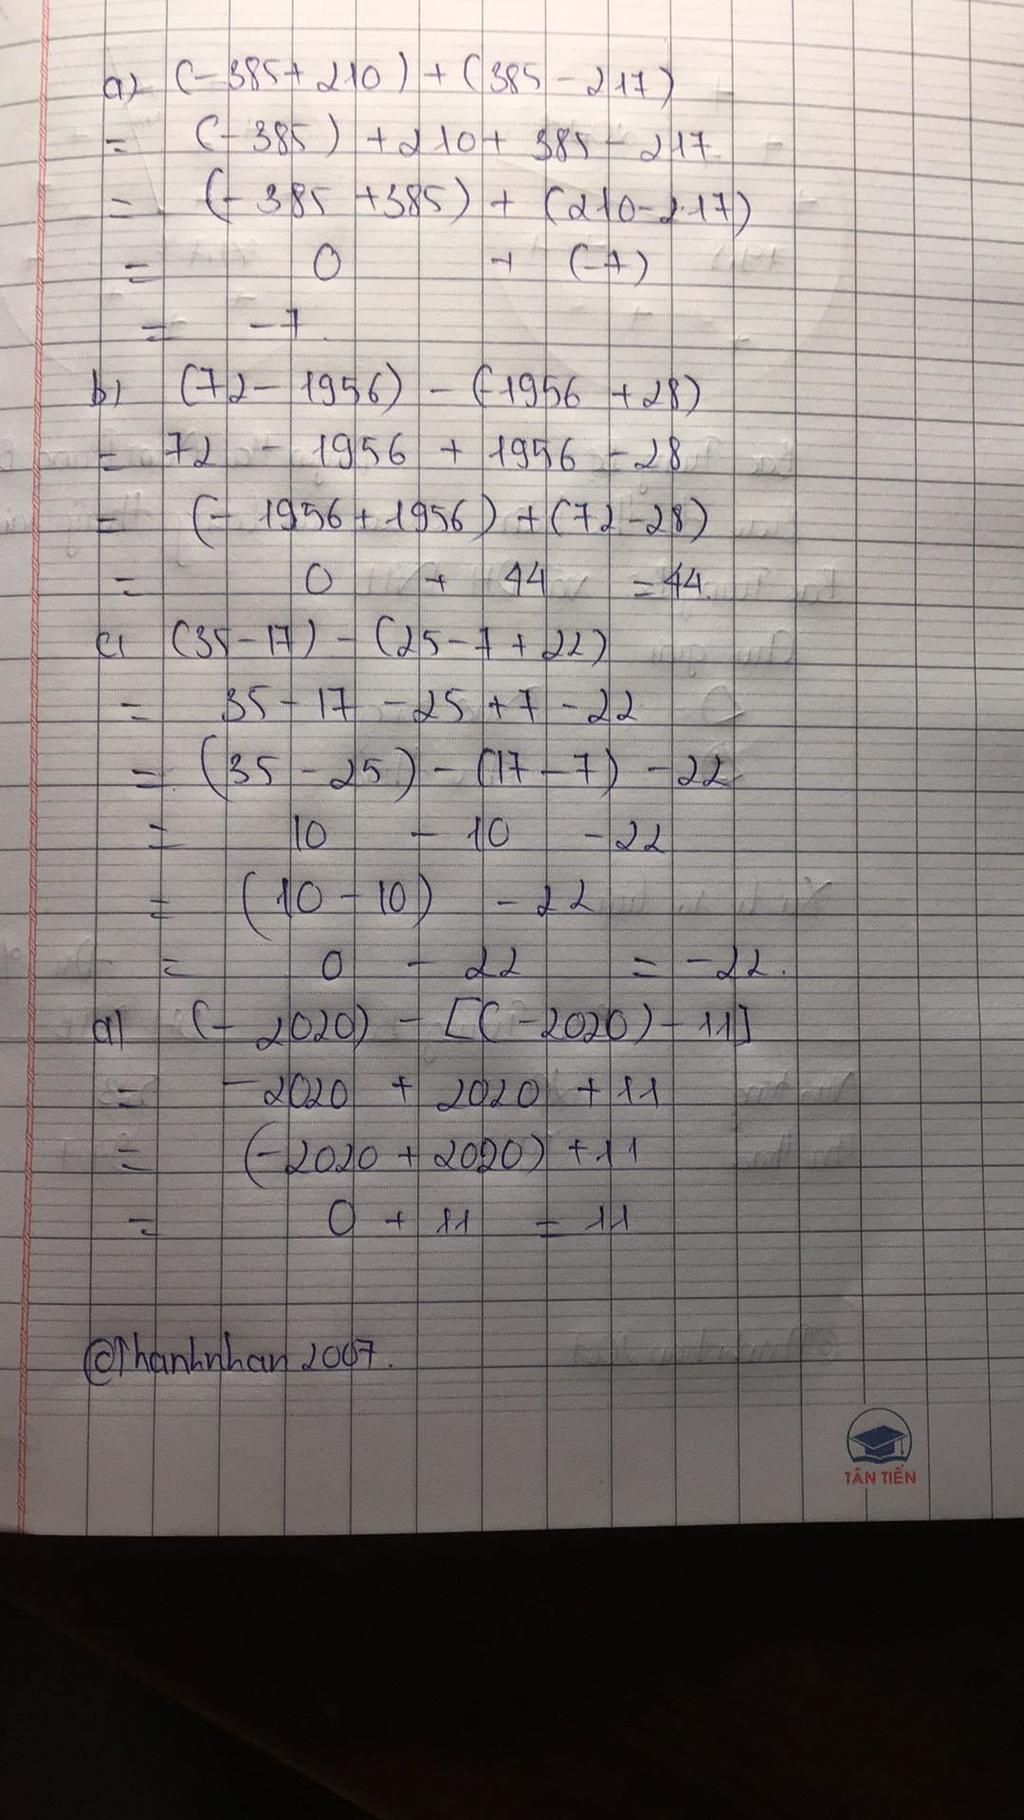 a) (-385+210)+(385-217)
= (-385)+210+385-217
= (-385+385)+(210-217)
= 0 + (-7)
= -7.
b) (72-1956)-(-1956+28)
= 72 - 1956 + 1956 - 28
= (-1956+1956)+(72-28)
= 0 + 44 = 44.
c) (35-17)-(25-7+22)
= 35-17-25+7-22
= (35-25)-(17-7)-22
= 10 - 10 - 22
= (10-10) - 22
= 0 - 22 = -22.
d) (-2020)-[(-2020)-11]
= -2020 + 2020 + 11
= (-2020+2020)+11
= 0 + 11 = 11
@Thanhnhan2007.
TÂN TIẾN